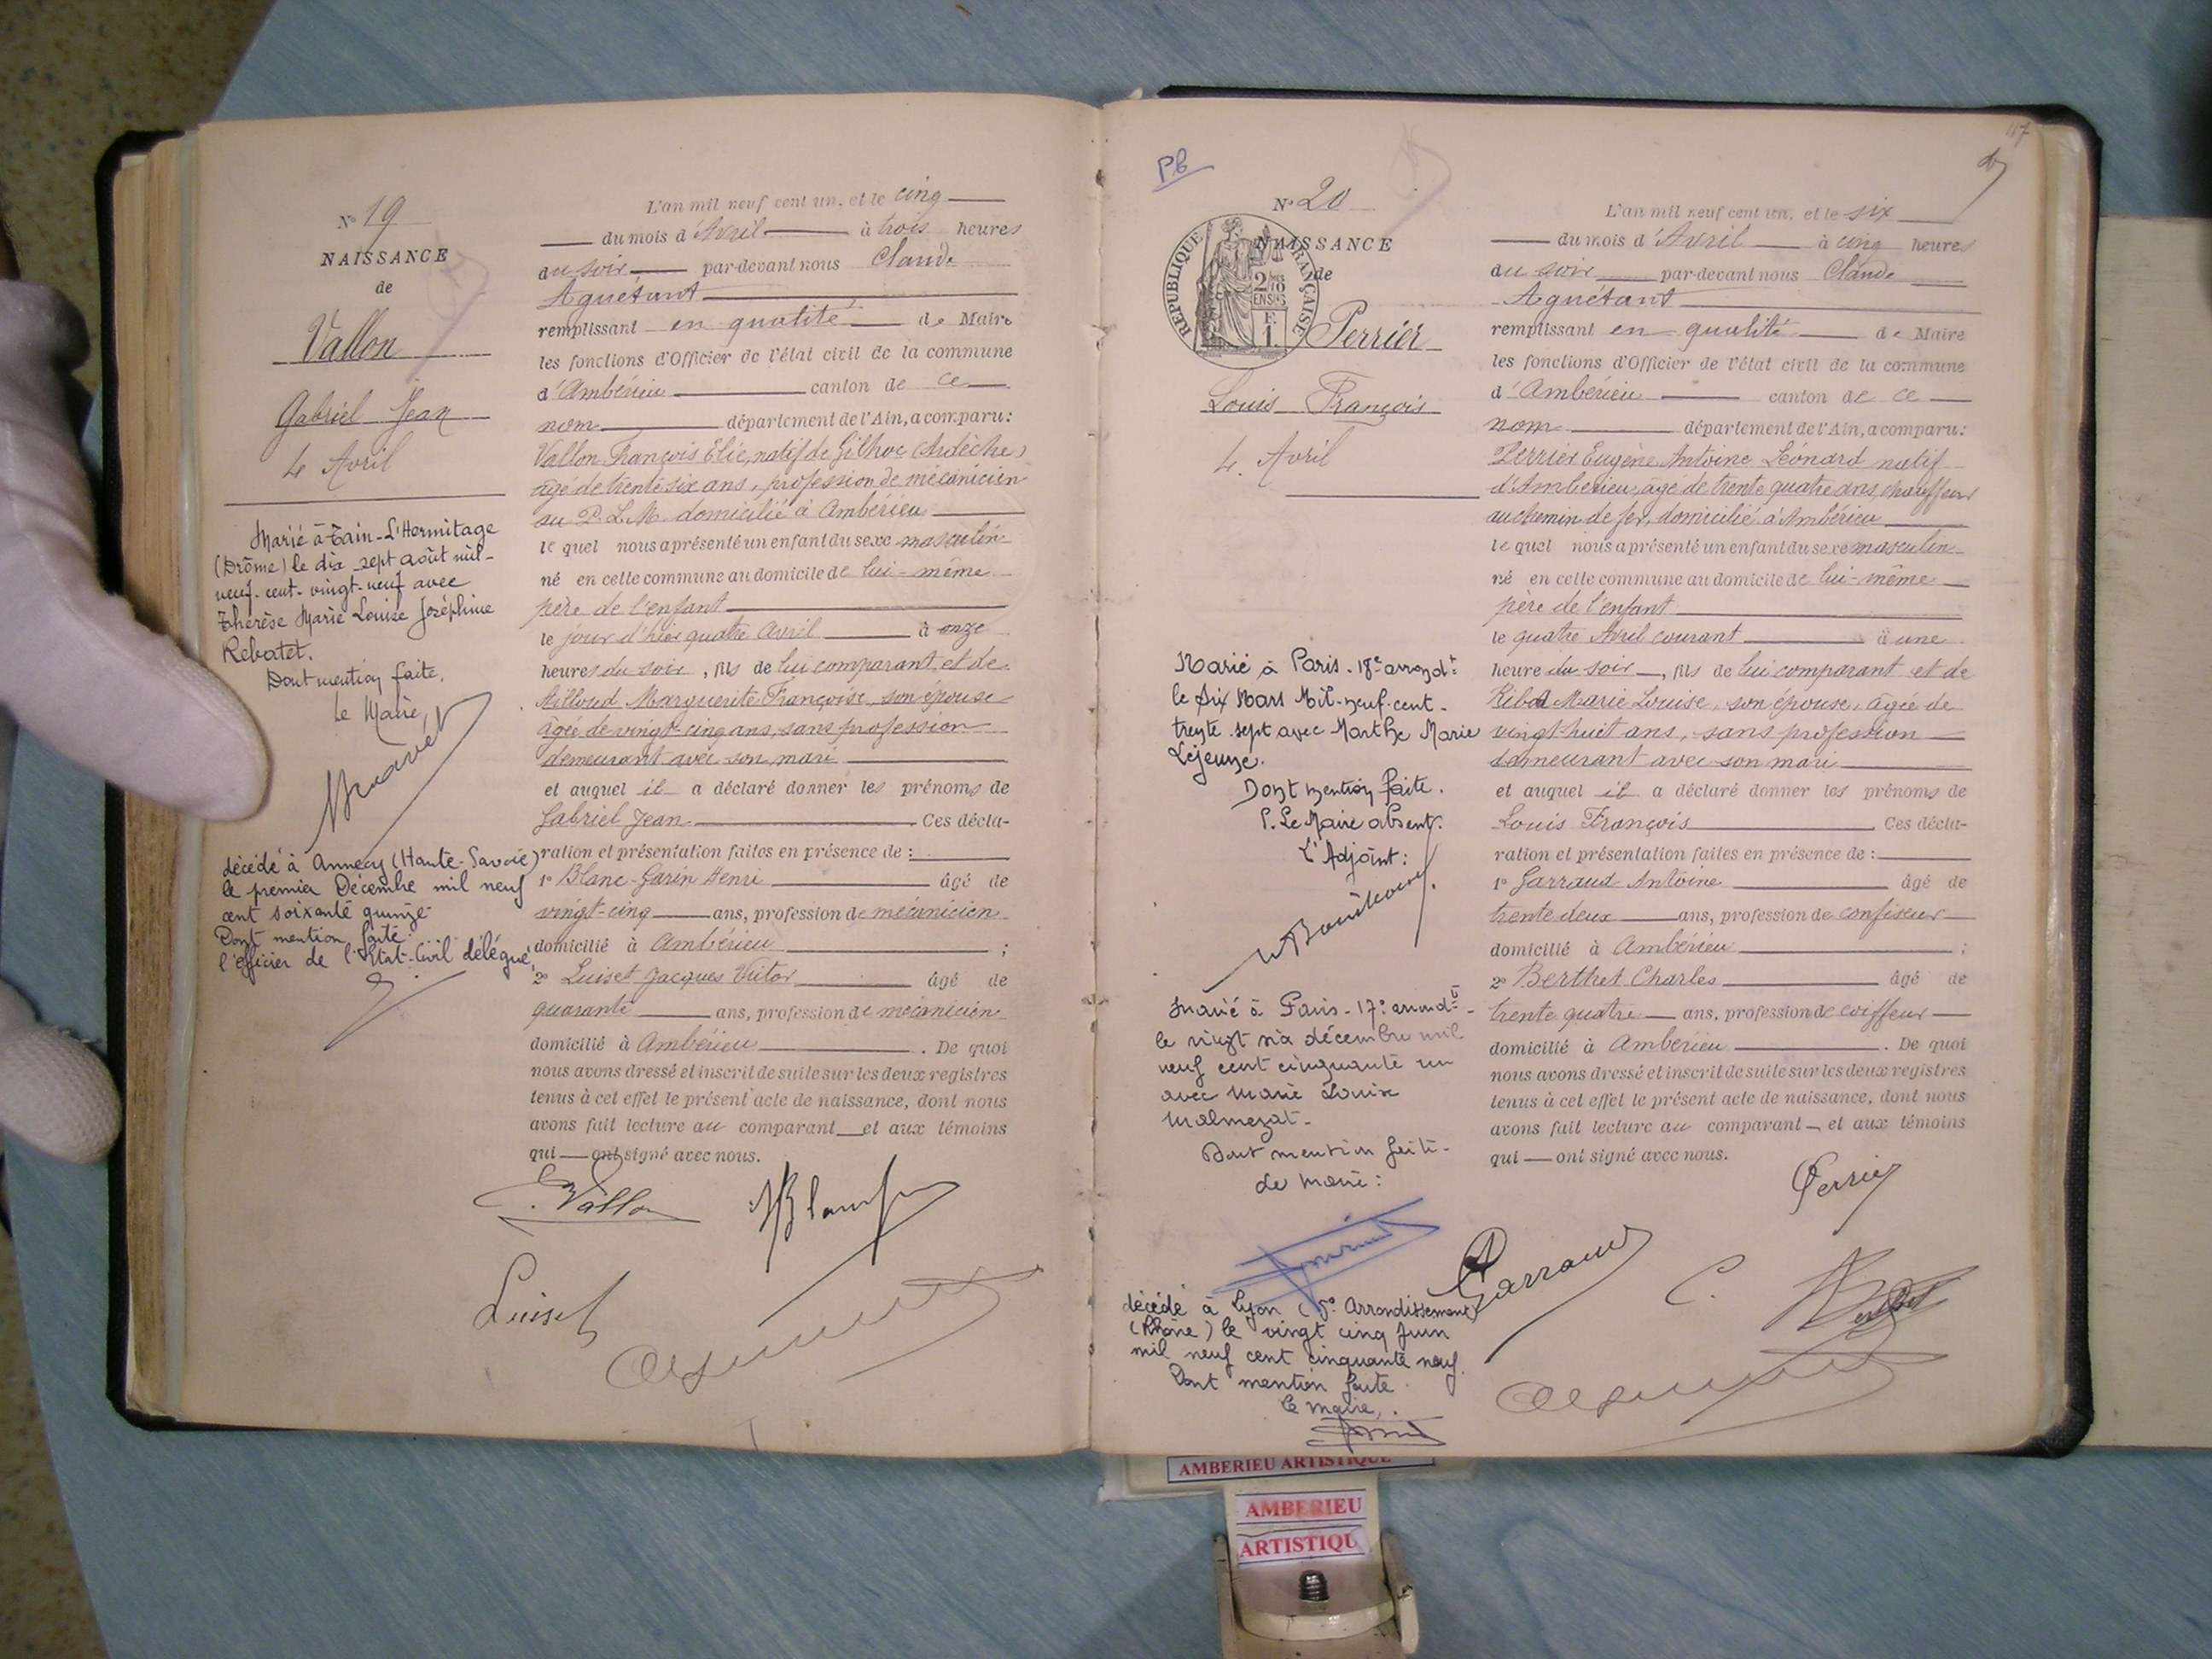 N° 19
NAISSANCE
de
Vallon
Gabriel Jean
4 Avril
Marié à Tain-L'Hermitage
(Drôme) le dix sept août mil-
neuf-cent-vingt-neuf avec
Thérèse Marie Louise Joséphine
Rebatet.
Dont mention faite,
Le Maire,
décédé à Annecy (Haute-Savoie)
le premier Décembre mil neuf
cent soixante quinze
Dont mention faite
l'officier de l'Etat-Civil délégué,
L'an mil neuf cent un, et le cinq
du mois d'Avril à trois heures
du soir par-devant nous Claude
Aguétant
remplissant en qualité de Maire
les fonctions d'Officier de l'état civil de la commune
d'Ambérieu canton de ce
nom département de l'Ain, a comparu:
Vallon François Elie, natif de Gilhoc (Ardèche)
âgé de trente six ans, profession de mécanicien
au P.L.M. domicilié à Ambérieu
lequel nous a présenté un enfant du sexe masculin
né en cette commune au domicile de lui-même
père de l'enfant
le jour d'hier quatre Avril à onze
heures du soir, fils de lui comparant, et de
Milloud Marguerite Françoise, son épouse
âgée de vingt-cinq ans, sans profession
demeurant avec son mari
et auquel il a déclaré donner les prénoms de
Gabriel Jean Ces décla-
ration et présentation faites en présence de:
1° Blanc-Garin Henri âgé de
vingt-cinq ans, profession de mécanicien
domicilié à Ambérieu ;
2° Luiset Jacques Victor âgé de
quarante ans, profession de mécanicien
domicilié à Ambérieu. De quoi
nous avons dressé et inscrit de suite sur les deux registres
tenus à cet effet le présent acte de naissance, dont nous
avons fait lecture au comparant et aux témoins
qui ont signé avec nous.
E. Vallon
Luiset
Pb
47
N° 20
NAISSANCE
de
REPUBLIQUE FRANÇAISE
Perrier
Louis François
4. Avril
Marié à Paris - 18e arrondt
le Six Mars Mil-neuf-cent-
trente-sept avec Marthe Marie
Lejeune.
Dont mention faite.
P. Le Maire absent.
L'Adjoint:
Marié à Paris - 17e arrondt
le vingt six décembre mil
neuf cent cinquante un
avec Marie Louise
Malmezat.
Dont mention faite-
le maire:
décédé à Lyon (5e Arrondissement)
(Rhône) le vingt cinq Juin
mil neuf cent cinquante neuf.
Dont mention faite
le maire,
L'an mil neuf cent un, et le six
du mois d'Avril à cinq heures
du soir par-devant nous Claude
Aguétant
remplissant en qualité de Maire
les fonctions d'Officier de l'état civil de la commune
d'Ambérieu canton de ce
nom département de l'Ain, a comparu:
Perrier Eugène Antoine Léonard natif
d'Ambérieu, âgé de trente quatre ans, chauffeur
au chemin de fer, domicilié à Ambérieu
lequel nous a présenté un enfant du sexe masculin
né en cette commune au domicile de lui-même
père de l'enfant
le quatre Avril courant à une
heure du soir, fils de lui comparant et de
Marie Louise, son épouse, âgée de
vingt huit ans, sans profession
demeurant avec son mari
et auquel il a déclaré donner les prénoms de
Louis François Ces décla-
ration et présentation faites en présence de:
1° Garraud Antoine âgé de
trente deux ans, profession de confiseur
domicilié à Ambérieu ;
2° Berthet Charles âgé de
trente quatre ans, profession de coiffeur
domicilié à Ambérieu. De quoi
nous avons dressé et inscrit de suite sur les deux registres
tenus à cet effet le présent acte de naissance, dont nous
avons fait lecture au comparant et aux témoins
qui ont signé avec nous.
Perrier
Garraud
AMBERIEU ARTISTIQUE
AMBERIEU
ARTISTIQU